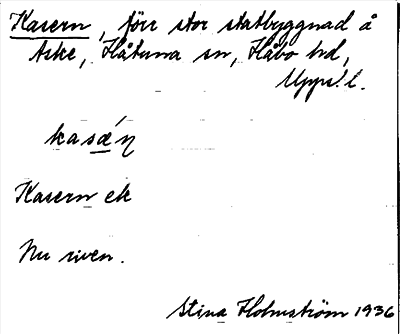 Kasern, förr stor statbyggnad å
Aske, Håtuna sn, Håbo hd,
Upps. l.
kasǽṇ
Kasern ek
Nu riven.
Stina Holmström 1936